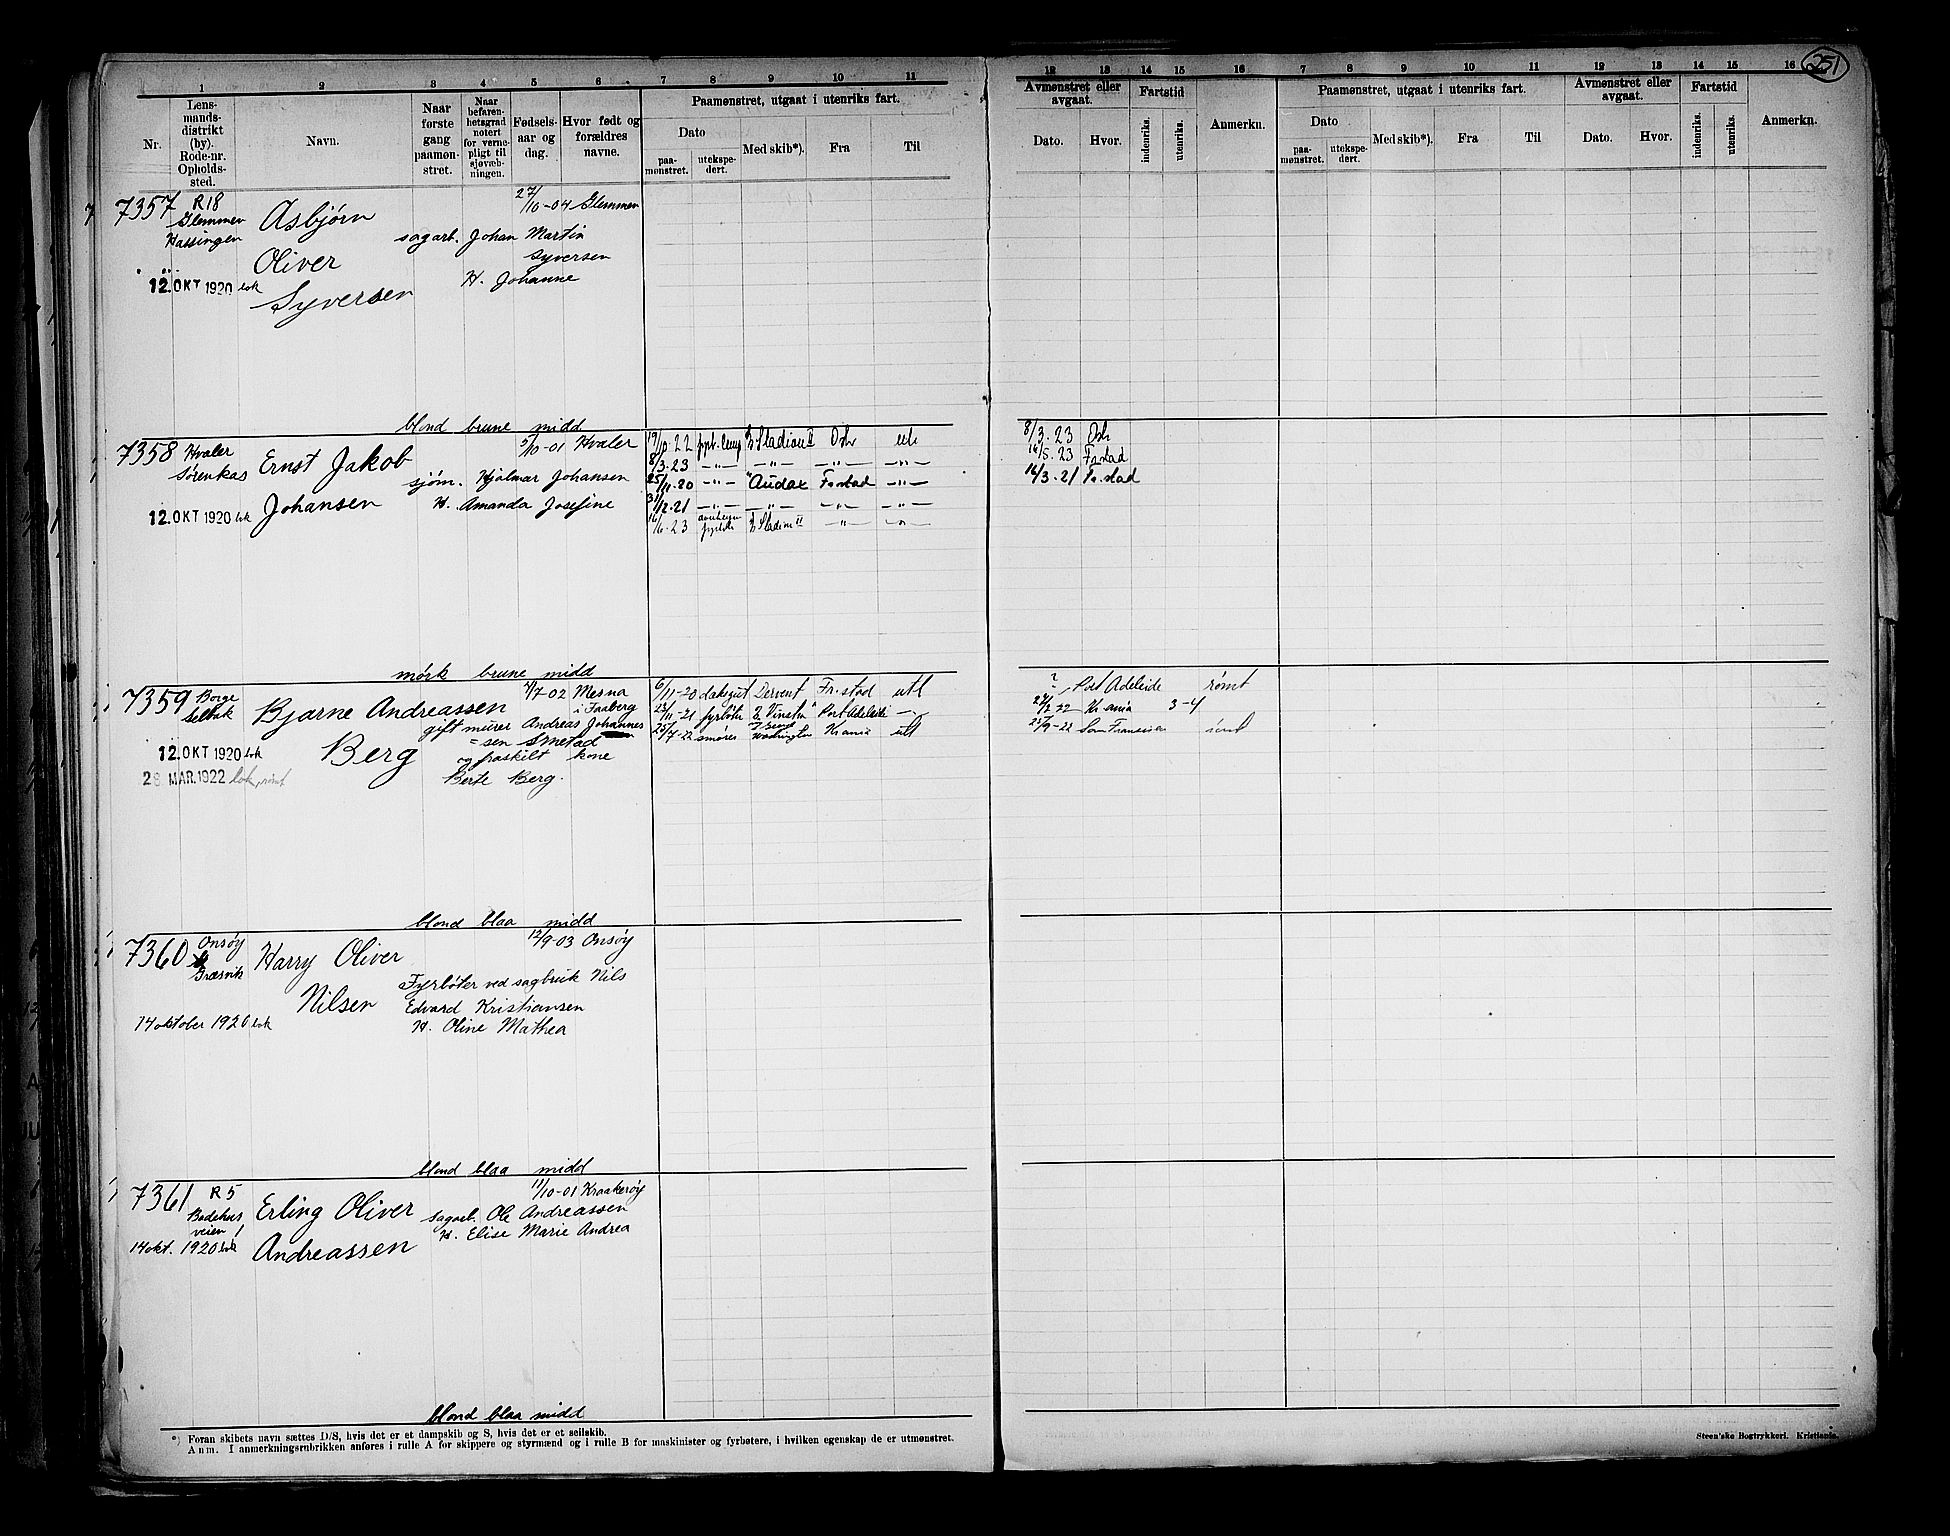 251
1 2 3 4 5 6 7 8 9 10 11
12 13 14 15 16 7 8 9 10 11 12 13 14 15 16
Nr.
Lens-
mands-
distrikt
(by).
Rode-nr.
Opholds-
sted.
Navn.
Naar
første
gang
paamøn-
stret.
Naar
befaren-
hetsgrad
notert
for verne-
pligt til
sjøvæb-
ningen.
Fødsels-
aar og
dag.
Hvor født og
forældres
navne.
Paamønstret, utgaat i utenriks fart.
Dato
paa-
mønstret.
utekspe-
dert.
Med skib*).
Fra
Til
Avmønstret eller
avgaat.
Dato.
Hvor.
Fartstid
indenriks.
utenriks.
Anmerkn.
Paamønstret, utgaat i utenriks fart.
Dato
paa-
mønstret.
utekspe-
dert.
Med skib*).
Fra
Til
Avmønstret eller
avgaat.
Dato.
Hvor.
Fartstid
indenriks.
utenriks.
Anmerkn.
7357 R18 27/10-04 Glemmen
Glemmen Asbjørn
Hassingen sagarb. Johan Martin
Oliver Syversen
12. OKT 1920 lok H. Johanne
Syversen
blond brune midd
7358 Hvaler Ernst Jakob 5/10-01 Hvaler
Sørenkas sjøm. Hjalmar Johansen
12. OKT 1920 lok Johansen H. Amanda Josefine
19/10.22 Oslo utl
8/3.23 -"- -"- -"- -"-
25/11.20 -"- "Audax Fr.stad -"-
31/12.21 -"- -"- -"- -"-
16/6.23 -"- -"-
8/3.23 Oslo
16/5.23 Fr.stad
16/3.21 Fr.stad
mørk brune midd
7359 Borge Bjarne Andreassen 7/7-02 Mesna
Selbak i Faaberg
gift murer Andreas Johannes
= sen Smestad
12. OKT 1920 lok Berg og fraskilt kone
28. MAR. 1922 lok, rømt Berte Berg.
6/11-20 daksgut Dervent Fr.stad utl
23/11-21 fyrbøter Port Adelaide
25/7-22 smører Washington Kr.ania utl
? Port Adeleide rømt
22 Kr.ania 3-4
/9-22 San Fransisco rømt
blond blaa midd
7360 Onsøy Harry Oliver 12/9-03 Onsøy
Græsvik
Fyrbøter ved sagbruk Nils
Nilsen Edvard Kristiansen
14 oktober 1920 lok H. Oline Mathea
blond blaa midd
7361 R 5 Erling Oliver 11/10-01 Kraakerøy
Badehus sagarb. Ole Andreassen
veien 1 H. Elise Marie Andrea
14 okt. 1920 lok Andreassen
blond blaa midd
*) Foran skibets navn sættes D/S, hvis det er et dampskib og S, hvis det er et seilskib.
Anm. I anmerkningsrubrikken anføres i rulle A for skippere og styrmænd og i rulle B for maskinister og fyrbøtere, i hvilken egenskap de er utmønstret.
Steen'ske Bogtrykkeri. Kristiania.